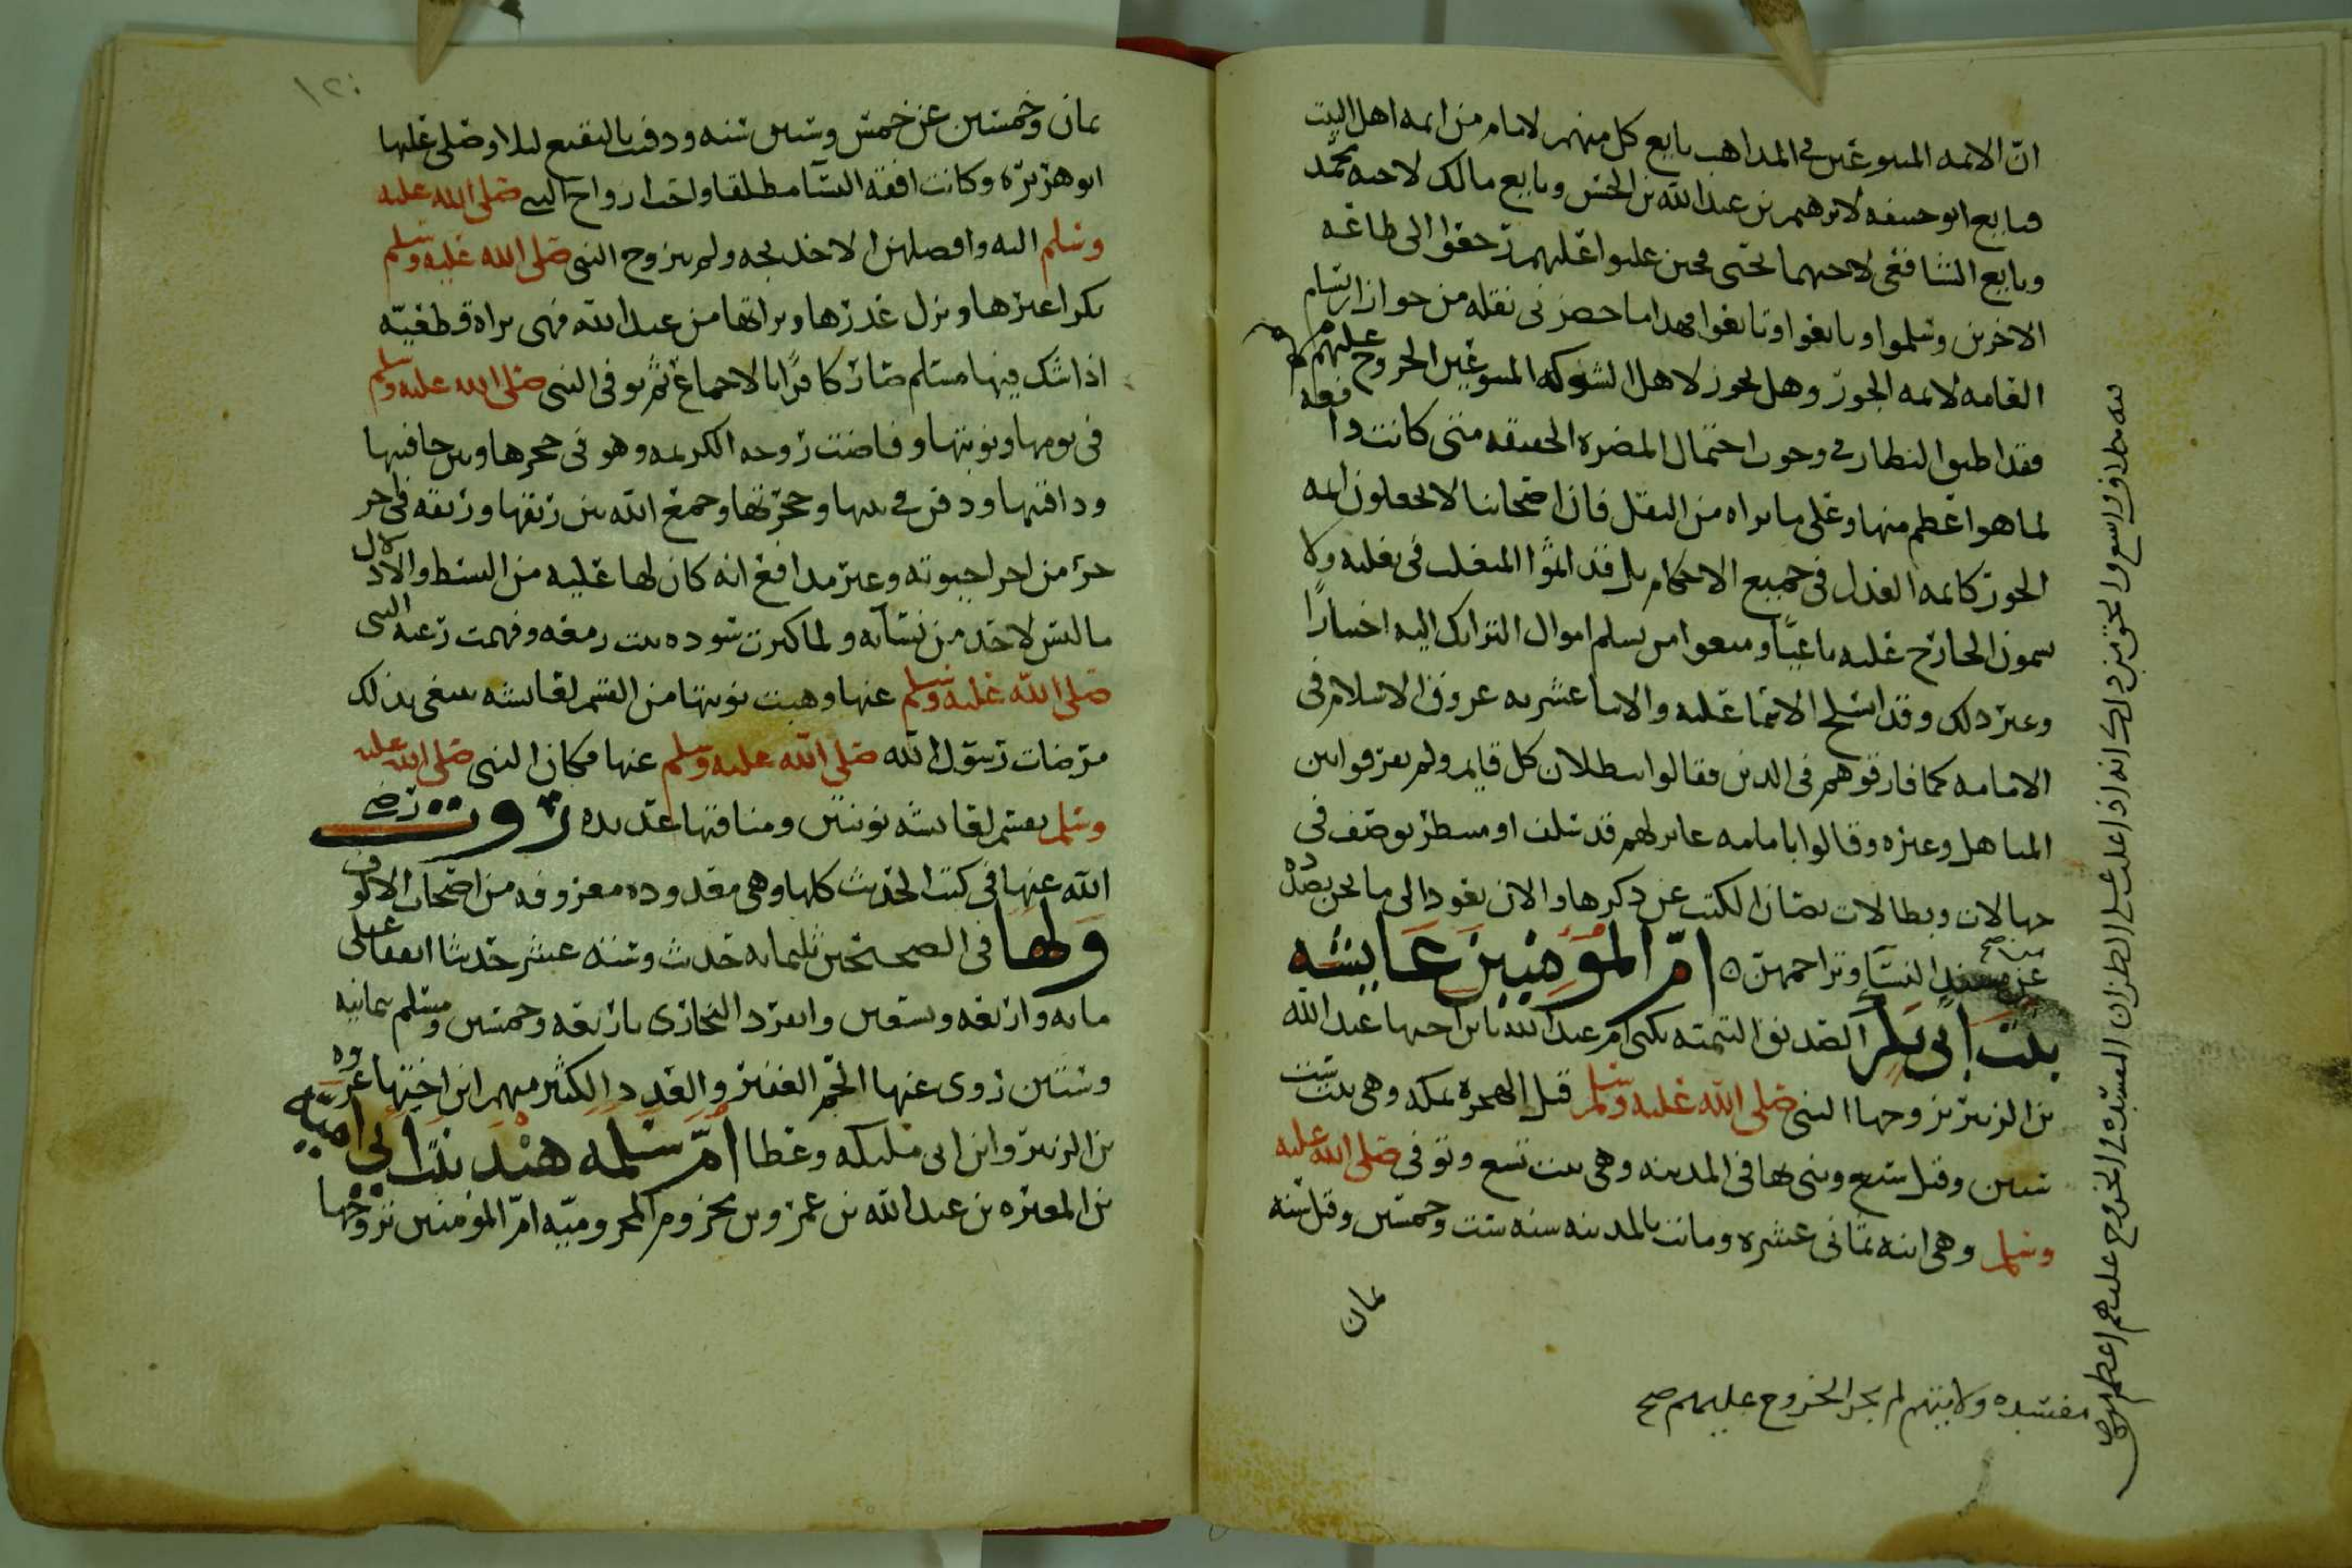 ان الائمه المتبوعين في المذاهب بايع كل منهم لامام من ائمه اهل البيت
فبايع ابو حنيفه لابرهيم بن عبد الله بن الحسن وبايع مالك لاخيه محمد
وبايع الشافعي لاخيهما يحيى فحين غلبوا عليهم رجعوا الى طاعه
الاخرين وسلموا وبايعوا وتابعوا فهذا ما حضرني نقله من جواز ارتسام
العامه لائمه الجور وهل يجوز لاهل الشوكه المتبوعين الخروج عليهم ام لا
فقد اطبق النظار في وجوب احتمال المضره الخفيفه متى كانت دافعه
لما هو اعظم منها وعلى ما نراه من النقل فان اصحابنا لا يجعلون ائمه
الجور كائمه العدل في جميع الاحكام بل قد اثموا المتغلب في تغلبه ولا
يسمون الخارج عليه باغيا ومنعوا من تسلم اموال التراك اليه اختيارا
وغير ذلك وقد اشلح الاثنا عليه والاثنا عشريه عروق الاسلام في
الامامه كما فارقوهم في الدين فقالوا ببطلان كل قايم ولم يعرفوا بين
المتاهل وغيره وقالوا بامامه غابر لهم قد سلف او منتظر يوصف في
جهالات وبطالات تصان الكتب عن ذكرها والان نعود الى ما نحن بصدده
عن مسند النساء وتراجمهن ام المؤمنين عايشه
بنت ابي بكر الصديق التيمته تكنى ام عبد الله بابن اختها عبد الله
بن الزبير تزوجها النبي صلى الله عليه وسلم قبل الهجره بمكه وهي بنت ست
سنين وقيل سبع وبنى بها في المدينه وهي بنت تسع وتوفي صلى الله عليه
وسلم وهي ابنه ثماني عشره وماتت بالمدينه سنه ست وخمسين وقيل سنه
ثمان
مفسده ولايتهم لم يجز الخروج عليهم صح
١٢٠
ثمان وخمسين عن خمس وستين سنه ودفنت بالبقيع ليلا وصلى عليها
ابو هريره وكانت افقه النسا مطلقا واحب ازواج النبي صلى الله عليه
وسلم اليه وافضلهن الا خديجه ولم يتزوج النبي صلى الله عليه وسلم
بكرا غيرها ونزل عذرها وبراتها من عند الله فهي براه قطعيه
اذا شك فيها مسلم صار كافرا بالاجماع ثم توفي النبي صلى الله عليه وسلم
في يومها ونوبتها وفاضت روحه الكريمه وهو في حجرها وبين حاقنتها
وذاقنتها ودفن في بيتها وحجرتها وجمع الله بين ريقها وريقه في اخر
جزء من اجزا حيوته وغير مدافع انه كان لها عليه من البسط والادلال
ما ليس لاحد من نسائه ولما كبرت سوده بنت زمعه وفهمت رغبه النبي
صلى الله عليه وسلم عنها وهبت نوبتها من القسم لعايشه تبتغي بذلك
مرضات رسول الله صلى الله عليه وسلم عنها فكان النبي صلى الله عليه
وسلم يقسم لعايشه نوبتين ومناقبها عديده روت رضي
الله عنها في كتب الحديث كلها وهي معدوده معروفه من اصحاب الالوف
ولها في الصحيحين ثلثمايه حديث وسته عشر حديثا اتفقا على
مايه واربعه وسبعين وانفرد البخاري باربعه وخمسين ومسلم بثمانيه
وستين روى عنها الجم الغفير والعدد الكثير منهم ابن اختها عروه
بن الزبير وابن ابي مليكه وعطا ام سلمه هند بنت ابي اميه
بن المغيره بن عبد الله بن عمر بن مخزوم المخزوميه ام المؤمنين تزوجها